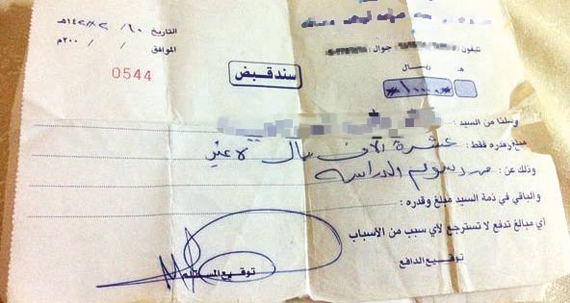 التاريخ ١٠/ ٢/ ١٤٢٨هـ
الموافق / / ٢٠٠م
تليفون : جوال :
0544
سند قبض
هـ ريال
١٠٠٠٠
وصلنا من السيد :
مبلغ وقدره فقط : عشرة الاف ريال لا غير
وذلك عن : رسوم الدراسه
والباقي في ذمة السيد مبلغ وقدره :
أي مبالغ تدفع لا تسترجع لأي سبب من الأسباب
توقيع الدافع
توقيع المستلم